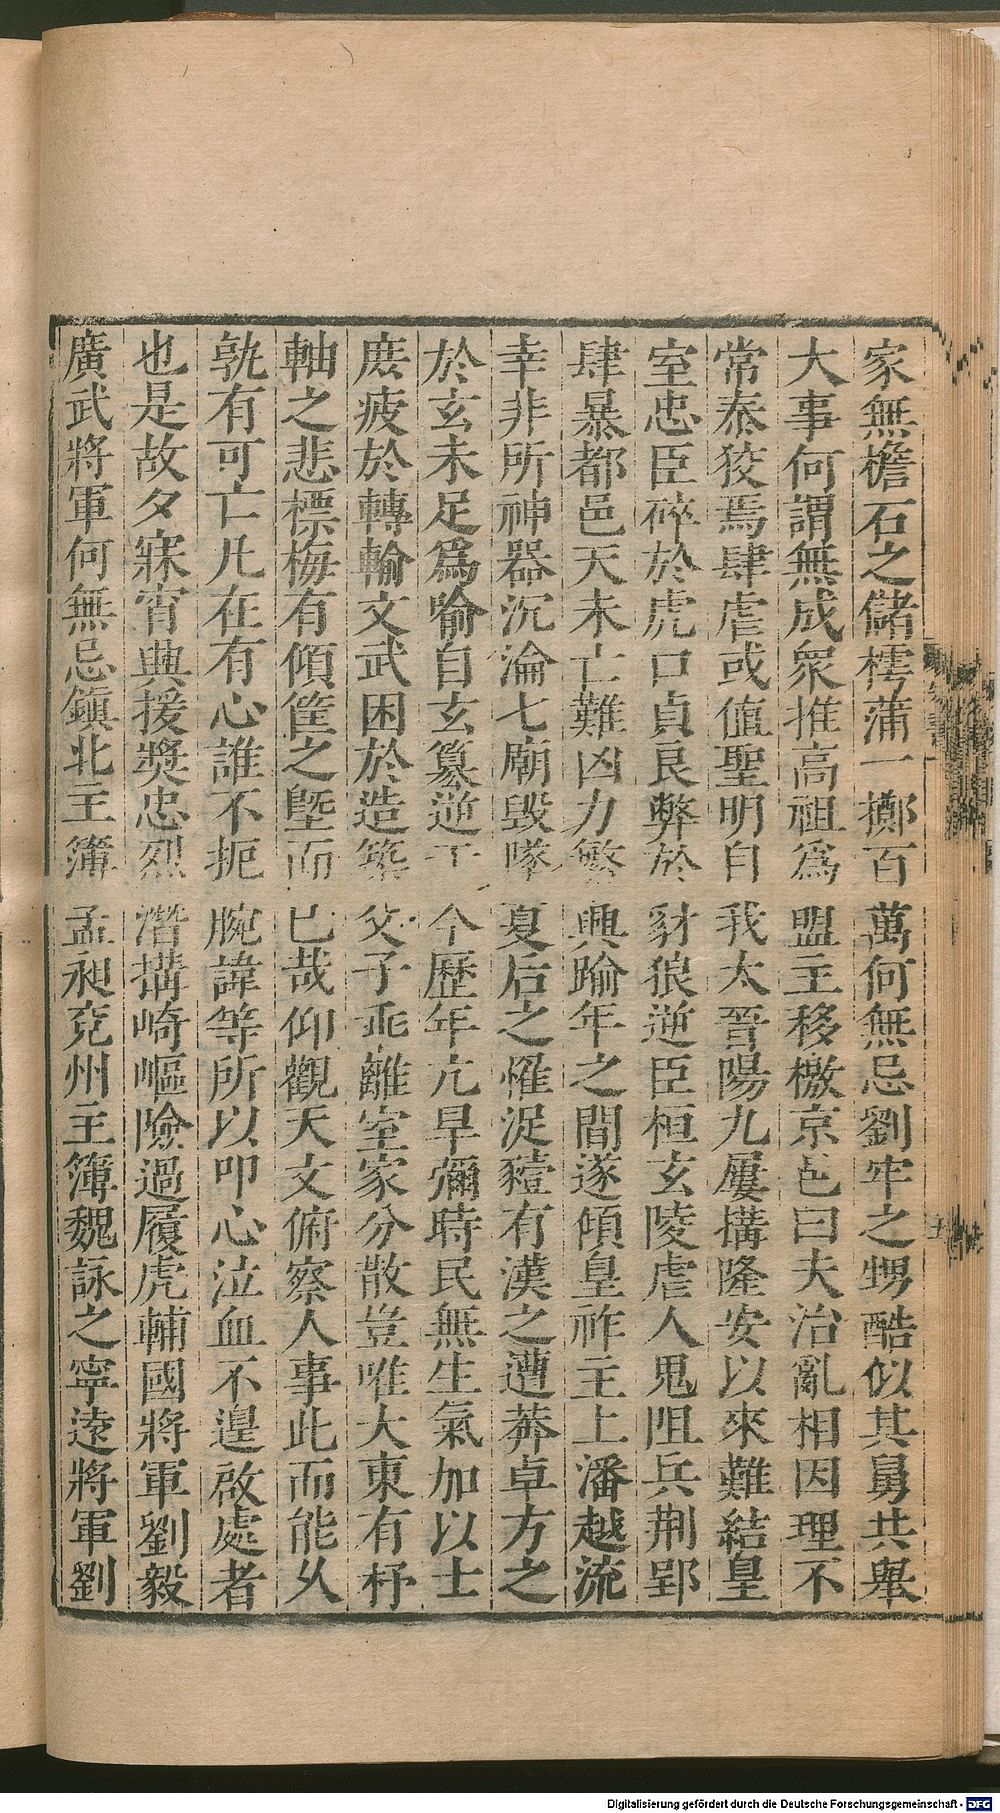 家無檐石之儲樗蒲一擲百萬何無忌劉牢之甥酷似其舅共舉
大事何謂無成衆推高祖爲盟主移檄京邑曰夫治亂相因理不
常泰狡焉肆虐或値聖明自我太晉陽九屢搆隆安以來難結皇
室忠臣碎於虎口貞良弊於豺狼逆臣桓玄陵虐人鬼阻兵荆郢
肆暴都邑天未亡難凶力繁興踰年之間遂傾皇祚主上播越流
幸非所神器沉淪七廟毀墜夏后之懼浞豷有漢之遭莽卓方之
於玄未足爲喻自玄篡逆于今歷年亢旱彌時民無生氣加以士
庶疲於轉輸文武困於造築父子乖離室家分散豈唯大東有杼
軸之悲摽梅有傾筐之塈而已哉仰觀天文俯察人事此而能久
孰有可亡凡在有心誰不扼腕諱等所以叩心泣血不遑啟處者
也是故夕寐宵興援獎忠烈潛搆崎嶇險過履虎輔國將軍劉毅
廣武將軍何無忌鎮北主簿孟昶兗州主簿魏詠之寧遠將軍劉
Digitalisierung gefördert durch die Deutsche Forschungsgemeinschaft - DFG